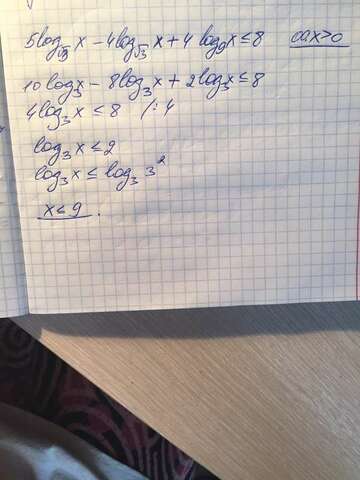 5log_√3 x - 4log_√3 x + 4 log_9 x ≤ 8 одх>0
10 log_3 x - 8log_3 x + 2log_3 x ≤ 8
4log_3 x ≤ 8 /:4
log_3 x ≤ 2
log_3 x ≤ log_3 3²
x ≤ 9 .